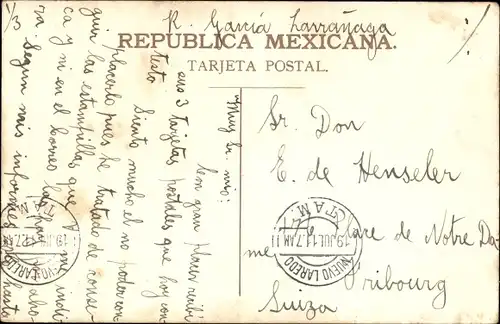 1/3
R. García Larrañaga
REPUBLICA MEXICANA.
TARJETA POSTAL.
Muy Sr. mío:
Con gran placer recibí
sus 3 tarjetas postales que hoy con-
testo.
Siento mucho el no poder con-
placerlo pues he tratado de conse-
guir las estampillas que A. me indi-
ca y ni en el correo las hay
ra. Según mis informes hasta
Sr. Don
E. de Henseler
Place de Notre Da-
me
Fribourg
Suiza
NUEVO LAREDO
19 JUL 11 7 AM
TAM.
NUEVO LAREDO
19 JUL 11 7 AM
TAM.